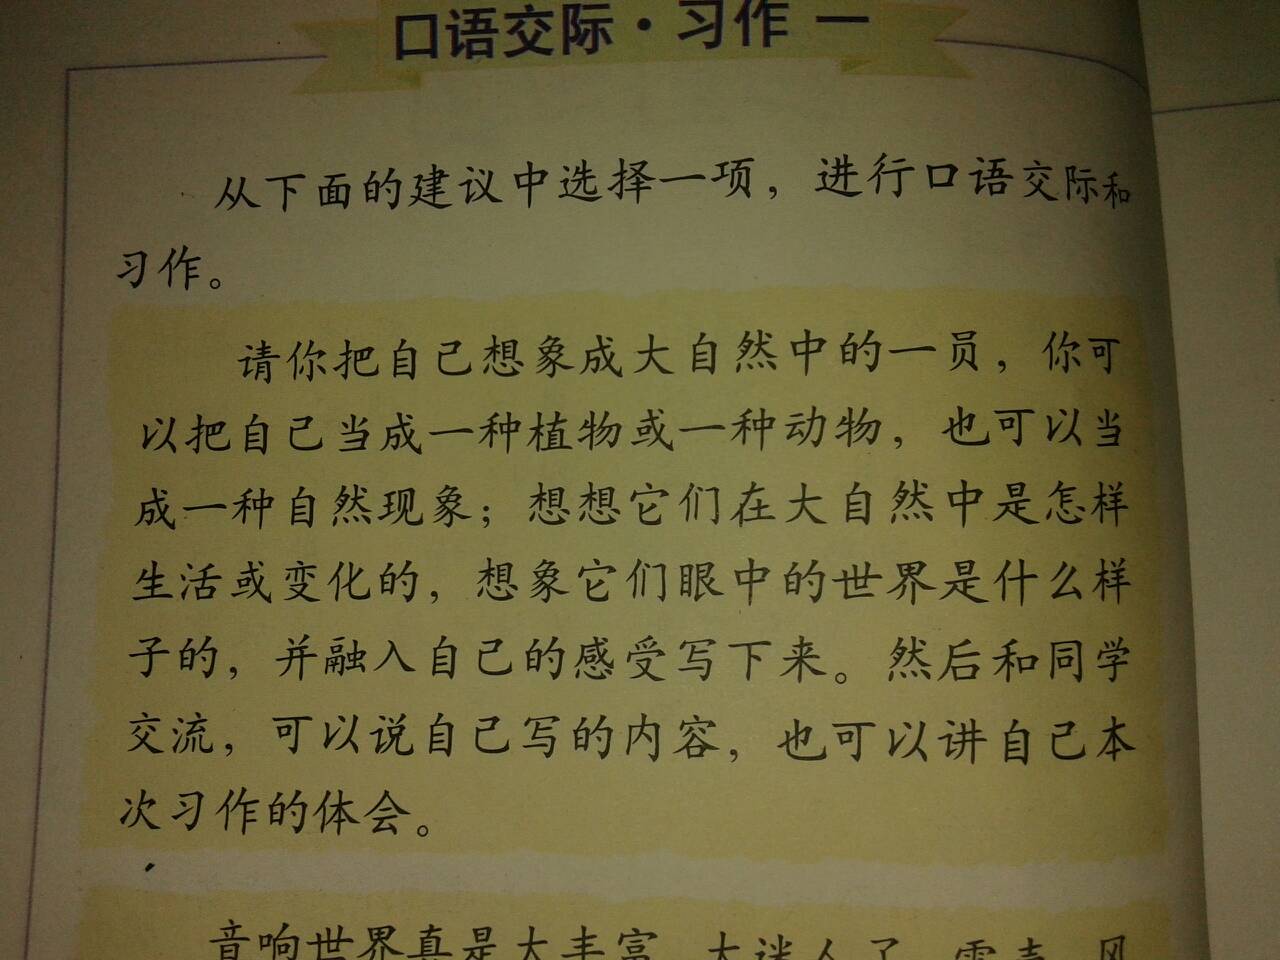 口语交际·习作一
从下面的建议中选择一项，进行口语交际和
习作。
请你把自己想象成大自然中的一员，你可
以把自己当成一种植物或一种动物，也可以当
成一种自然现象；想想它们在大自然中是怎样
生活或变化的，想象它们眼中的世界是什么样
子的，并融入自己的感受写下来。然后和同学
交流，可以说自己写的内容，也可以讲自己本
次习作的体会。
音响世界真是大丰富 大迷人了 雷声 风